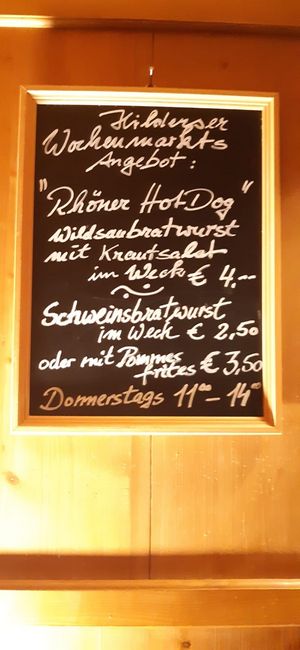 Hilderser
Wochenmarkts
Angebot:
"Rhöner HotDog"
Wildsaubratwurst
mit Krautsalat
im Weck € 4,--
Schweinsbratwurst
im Weck € 2,50
oder mit Pommes
frites € 3,50
Donnerstags 11⁰⁰ - 14⁰⁰